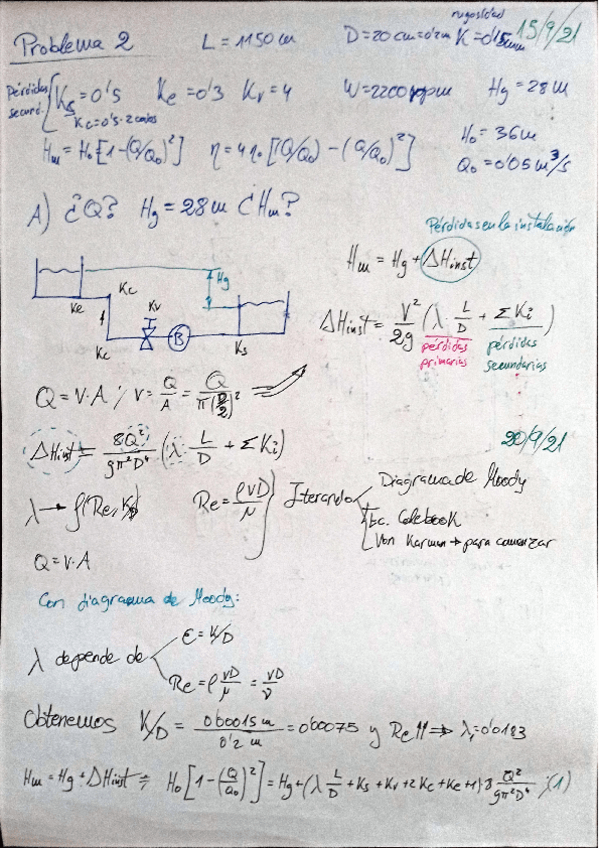 Problema 2 L = 1150 m D = 20 cm = 0'2 m K = 0'15 mm 15/9/21
rugosidad
Pérdidas secund. { Ks = 0'5 Ke = 0'3 Kv = 4 W = 2200 rpm Hg = 28 m
Kc = 0'5 · 2 codos
Hm = H0 [1 - (Q/Q0)²] η = 4η0 [(Q/Q0) - (Q/Q0)²] H0 = 36 m
Q0 = 0'05 m³/s
A) ¿Q? Hg = 28 m ¿Hm?
Pérdidas en la instalación
Hm = Hg + ΔHinst
Hg
Ke Kc Kv
Kc B Ks
ΔHinst = V²/2g (λ L/D + Σ Ki)
pérdidas primarias pérdidas secundarias
Q = V·A ; V = Q/A = Q/π(D/2)²
20/9/21
ΔHinst = 8Q²/gπ²D⁴ (λ · L/D + Σ Ki)
λ → f(Re, K/D) Re = ρVD/μ } Iterando Diagrama de Moody
Ec. Colebook
Von Karman → para comenzar
Q = V·A
Con diagrama de Moody:
λ depende de ε = K/D
Re = ρ VD/μ = VD/ν
Obtenemos K/D = 0'00015 m / 0'2 m = 0'00075 y Re ↑↑ ⇒ λ1 = 0'0183
Hm = Hg + ΔHinst ; H0 [1 - (Q/Q0)²] = Hg + (λ L/D + Ks + Kv + 2Kc + Ke + 1) 8 Q²/gπ²D⁴ ; (1)